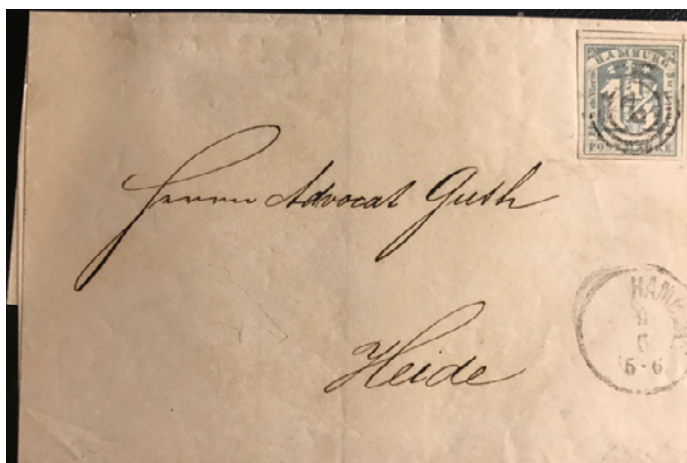 HAMBURG
1¼
POSTMARKE
Herrn Advocat Guth
Heide
HAMBURG
6
5-6